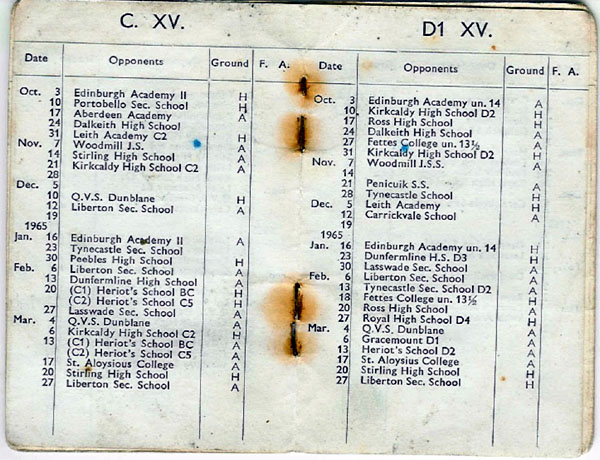 C. XV.
Date Opponents Ground F. A.
Oct. 3 Edinburgh Academy II H
10 Portobello Sec. School H
17 Aberdeen Academy A
24 Dalkeith High School
31 Leith Academy C2 H
Nov. 7 Woodmill J.S. A
14 Stirling High School H
21 Kirkcaldy High School C2 A
28
Dec. 5
10 Q.V.S. Dunblane H
12 Liberton Sec. School A
19
1965
Jan. 16 Edinburgh Academy II A
23 Tynecastle Sec. School
30 Peebles High School H
Feb. 6 Liberton Sec. School A
13 Dunfermline High School A
20 (C1) Heriot's School BC H
(C2) Heriot's School C5 H
27 Lasswade Sec. School A
Mar. 4 Q.V.S. Dunblane A
6 Kirkcaldy High School C2 H
13 (C1) Heriot's School BC A
(C2) Heriot's School C5 A
17 St. Aloysious College A
20 Stirling High School H
27 Liberton Sec. School A
D1 XV.
Date Opponents Ground F. A.
Oct. 3 Edinburgh Academy un. 14 A
10 Kirkcaldy High School D2 H
17 Ross High School H
24 Dalkeith High School A
27 Fettes College un. 13½ A
31 Kirkcaldy High School D2 H
Nov. 7 Woodmill J.S.S. A
14
21 Penicuik S.S. A
28 Tynecastle School H
Dec. 5 Leith Academy H
12 Carrickvale School A
19
1965
Jan. 16 Edinburgh Academy un. 14 H
23 Dunfermline H.S. D3 H
30 Lasswade Sec. School A
Feb. 6 Liberton Sec. School A
13 Tynecastle Sec. School D2 H
18 Fettes College un. 13½ H
20 Ross High School A
27 Royal High School D4 H
Mar. 4 Q.V.S. Dunblane A
6 Gracemount D1 A
13 Heriot's School D2 H
17 St. Aloysius College A
20 Stirling High School H
27 Liberton Sec. School H